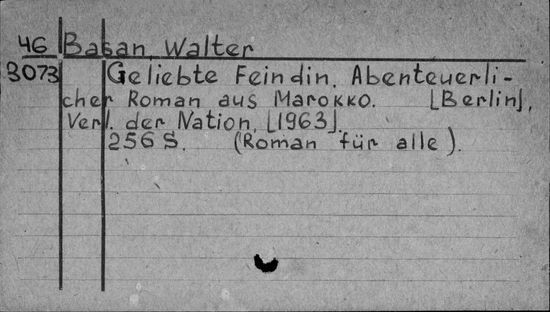 46 Basan, Walter
3073 Geliebte Feindin. Abenteuerli-
cher Roman aus Marokko. [Berlin],
Verl. der Nation, [1963].
256 S. (Roman für alle).